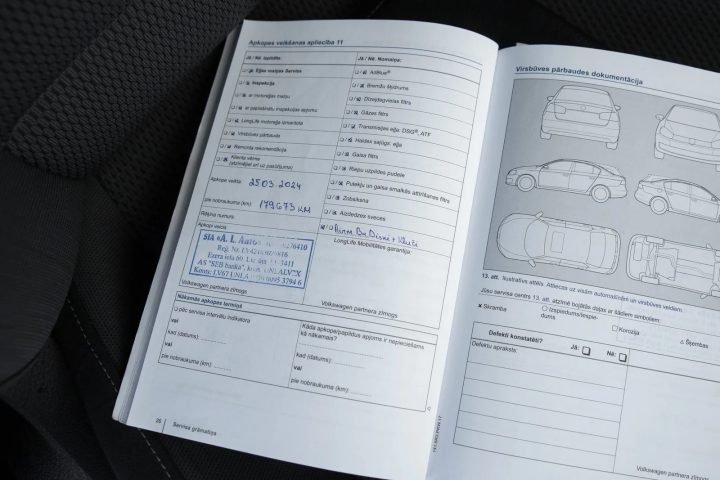 Apkopes veikšanas apliecība 11
Jā / Nē. Izpildīts:
Eļļas maiņas Serviss
Inspekcija
ar motoreļļas maiņu
ar paplašinātu inspekcijas apjomu
LongLife motoreļļa izmantota
Virsbūves pārbaude
Remonta rekomendācija
Klienta vēlme
(atzīmējiet arī uz pasūtījuma)
Apkope veikta: 25.03.2024
pie nobraukuma (km): 179673 KM
Rēķina numurs
Apkopi veica:
SIA «A. I. Auto»
Reģ. Nr.
Ezera iela 60
AS "SEB banka", kods UNLALV2X
Konts: LV67UNLA
Volkswagen partnera zīmogs
Jā / Nē. Nomaiņa:
AdBlue®
Bremžu šķidrums
Dīzeļdegvielas filtrs
Gāzes filtrs
Transmisijas eļļa: DSG®, ATF
Haldex sajūgs: eļļa
Gaisa filtrs
Riepu uzpildes pudele
Putekļu un gaisa smalkās attīrīšanas filtrs
Zobsiksna
Aizdedzes sveces
LongLife Mobilitātes garantija:
Volkswagen partnera zīmogs
Nākamās apkopes termiņš
pēc servisa intervālu indikatora
vai
kad (datums):
vai
pie nobraukuma (km):
Kāda apkope/papildus apjoms ir nepieciešams
kā nākamais?
kad (datums):
vai
pie nobraukuma (km):
26 Servisa grāmatiņa
Virsbūves pārbaudes dokumentācija
13. att. Ilustratīvs attēls. Attiecas uz visām automašīnām un virsbūves veidiem.
Jūsu servisa centrs 13. att. atzīmē bojātās daļas ar šādiem simboliem:
x Skramba
Izspiedums/iespie-
dums
Korozija
Šķembas
Defekti konstatēti? Jā: Nē:
Defektu apraksts:
Volkswagen partnera zīmogs